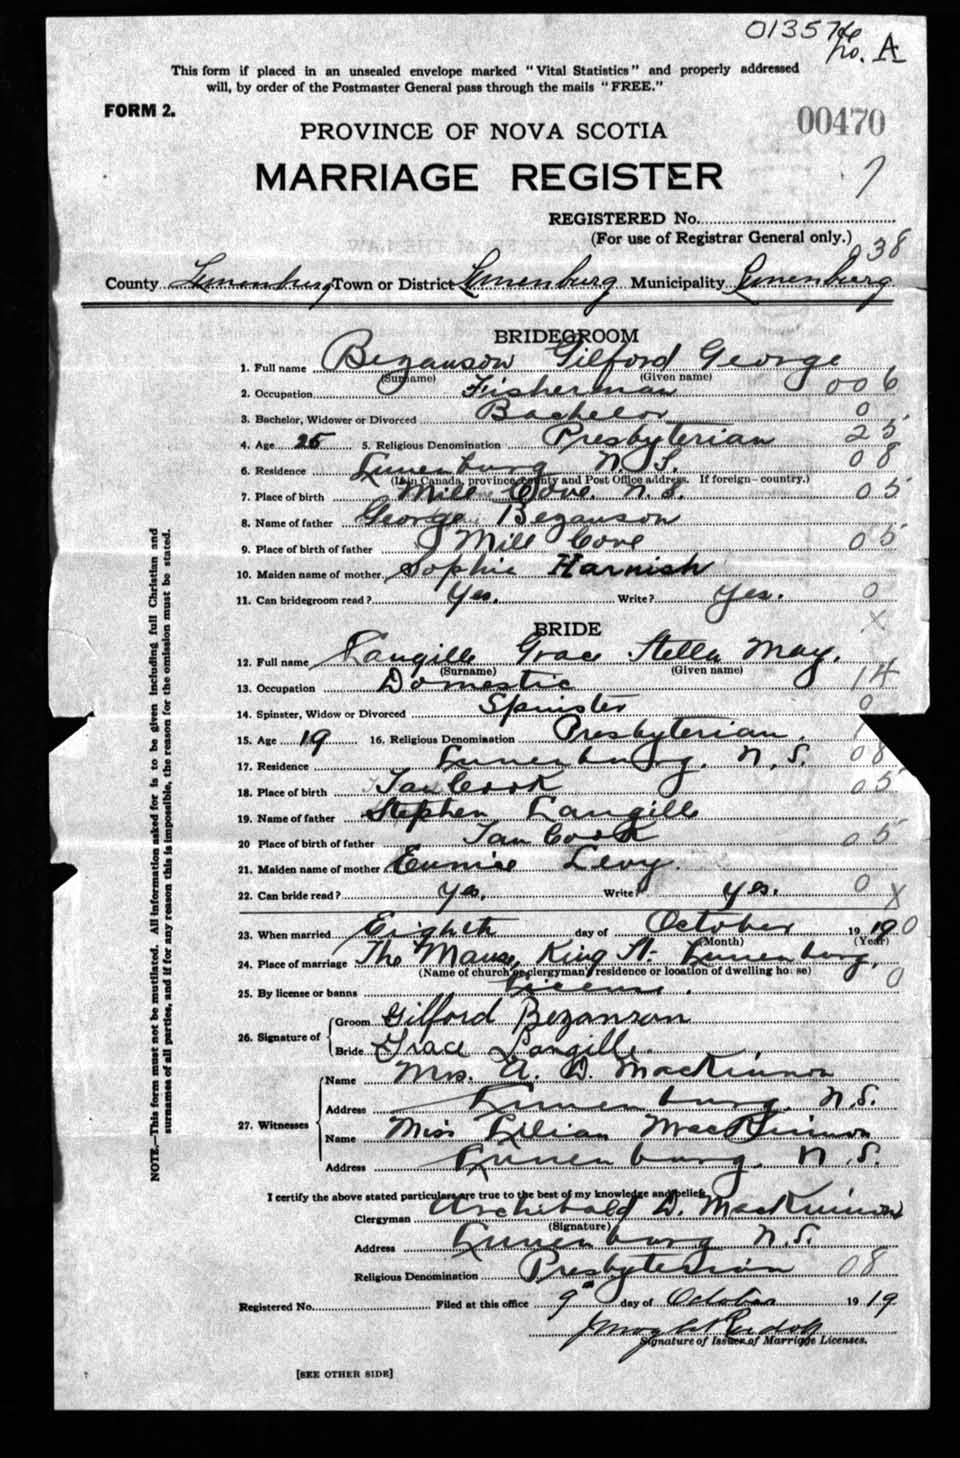 013576
no. A
This form if placed in an unsealed envelope marked "Vital Statistics" and properly addressed
will, by order of the Postmaster General pass through the mails "FREE."
FORM 2.
PROVINCE OF NOVA SCOTIA
00470
MARRIAGE REGISTER
7
REGISTERED No.
(For use of Registrar General only.)
038
County Lunenburg Town or District Lunenburg Municipality Lunenburg
BRIDEGROOM
1. Full name Bezanson Gilford George
(Surname) (Given name)
2. Occupation Fisherman 006
3. Bachelor, Widower or Divorced Bachelor 0
4. Age 25 5. Religious Denomination Presbyterian 25
6. Residence Lunenburg N.S. 08
(If in Canada, province, county and Post Office address. If foreign-country.)
7. Place of birth Mill Cove. N.S. 05
8. Name of father George Bezanson
9. Place of birth of father Mill Cove 05
10. Maiden name of mother, Sophie Harnish
11. Can bridegroom read? Yes. Write? Yes. 0
X
BRIDE
12. Full name Langille Grace Stella May.
(Surname) (Given name)
13. Occupation Domestic 14
14. Spinster, Widow or Divorced Spinster 0
15. Age 19 16. Religious Denomination Presbyterian.
17. Residence Lunenburg, N.S. 08
18. Place of birth Tancook 05
19. Name of father Stephen Langille
20 Place of birth of father Tancook 05
21. Maiden name of mother Eunice Levy.
22. Can bride read? Yes. Write? Yes. 0 X
23. When married Eighth day of October 1919 0
(Month) (Year)
24. Place of marriage The Manse, King St. Lunenburg.
(Name of church or clergyman's residence or location of dwelling house)
25. By license or banns License. 0
26. Signature of Groom Gilford Bezanson
Bride Grace Langille
27. Witnesses Name Mrs. A. D. MacKinnon
Address Lunenburg, N.S.
Name Miss Lilian MacKinnon
Address Lunenburg, N.S.
I certify the above stated particulars are true to the best of my knowledge and belief.
Clergyman Archibald D. MacKinnon
(Signature)
Address Lunenburg N.S.
Religious Denomination Presbyterian 08
Registered No. Filed at this office 9th day of October 1919
Signature of Issuer of Marriage Licenses.
[SEE OTHER SIDE]
NOTE.—This form must not be mutilated. All information asked for is to be given including full Christian and
surnames of all parties, and if for any reason this is impossible, the reason for the omission must be stated.